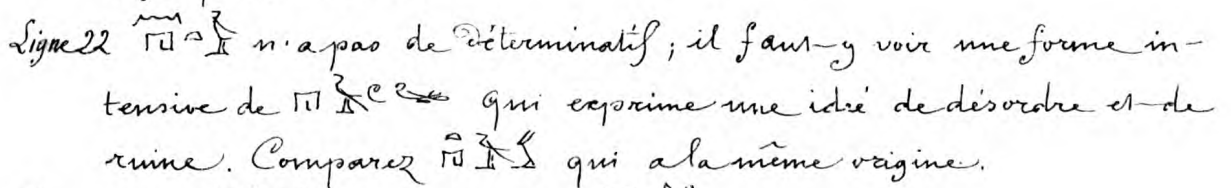 Ligne 22 n'a pas de déterminatif; il faut y voir une forme in-
tensive de qui exprime une idée de désordre et de
ruine. Comparez qui a la même origine.